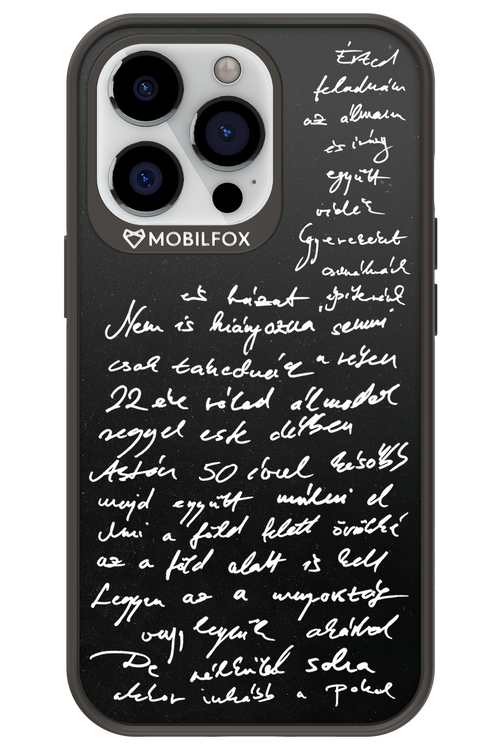 MOBILFOX
Érted
feladnám
az álmaim
és irány
együtt
vidék
Gyerekeket
csinálnánk
és házat építenénk
Nem is hiányozna semmi
csak takednék a vélem
22 éve rólad álmodok
reggel este délben
Aztán 50 évvel később
majd együtt múlni el
Ami a föld felett örökké
az a föld alatt is kell
Legyen az a mennyország
vagy legyünk akárhol
De nélküled soha
akkor inkább a pokol